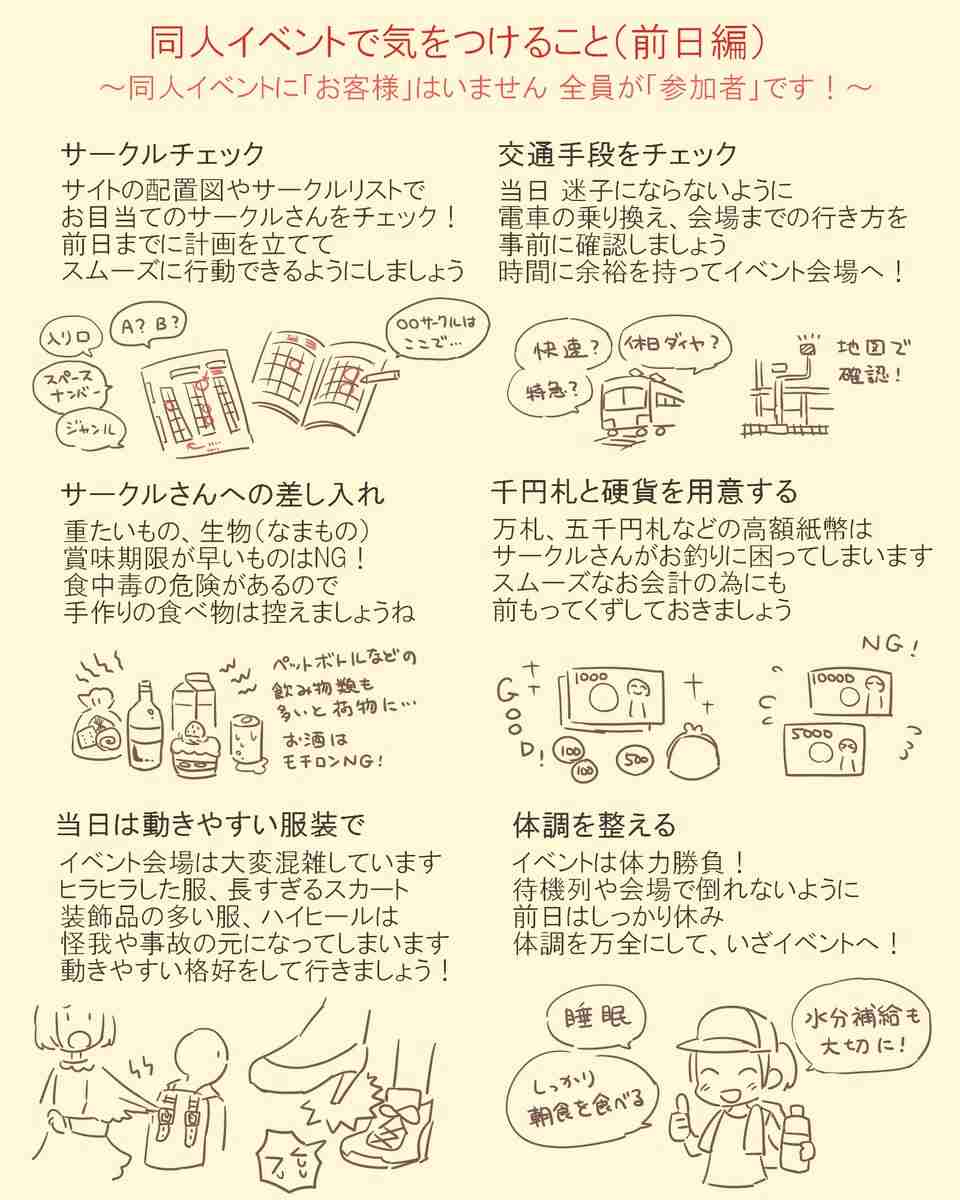 同人イベントで気をつけること(前日編)
～同人イベントに「お客様」はいません 全員が「参加者」です！～
サークルチェック
サイトの配置図やサークルリストで
お目当てのサークルさんをチェック！
前日までに計画を立てて
スムーズに行動できるようにしましょう
入り口
A? B?
スペース
ナンバー
ジャンル
○○サークルは
ここで…
交通手段をチェック
当日 迷子にならないように
電車の乗り換え、会場までの行き方を
事前に確認しましょう
時間に余裕を持ってイベント会場へ！
快速?
休日ダイヤ?
特急?
地図で
確認!
サークルさんへの差し入れ
重たいもの、生物(なまもの)
賞味期限が早いものはNG！
食中毒の危険があるので
手作りの食べ物は控えましょうね
ペットボトルなどの
飲み物類も
多いと荷物に…
お酒は
モチロンNG!
千円札と硬貨を用意する
万札、五千円札などの高額紙幣は
サークルさんがお釣りに困ってしまいます
スムーズなお会計の為にも
前もってくずしておきましょう
GOOD!
1000
100
100
500
NG!
10000
5000
当日は動きやすい服装で
イベント会場は大変混雑しています
ヒラヒラした服、長すぎるスカート
装飾品の多い服、ハイヒールは
怪我や事故の元になってしまいます
動きやすい格好をして行きましょう！
体調を整える
イベントは体力勝負！
待機列や会場で倒れないように
前日はしっかり休み
体調を万全にして、いざイベントへ！
睡眠
しっかり
朝食を食べる
水分補給も
大切に!